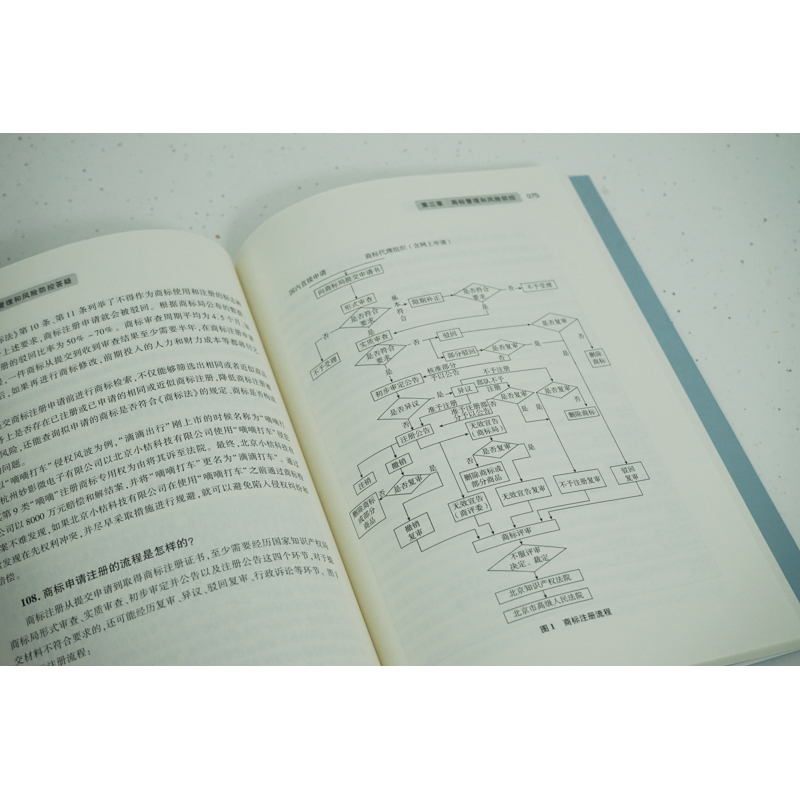 管理和风险防控答疑
标法》第10条、第11条列举了不得作为商标使用和注册的标志
上述要求，商标注册申请就会被驳回。根据商标局公布的数据
册的驳回比率为50%~70%。商标审查周期平均为4.5个月
，一件商标从提交到收到审查结果至少需要半年，在商标注册申
后，如果再进行商标修改，前期投入的人力和财力成本等都将
交商标注册申请前进行商标检索，不仅能够筛选出相同或者近似商
上是否存在已注册或已申请的相同或近似商标注册，降低商标注册被
风险，还能查询拟申请的商标是否符合《商标法》的规定，商标是否构成
问题。
以“嘀嘀打车”侵权风波为例，“滴滴出行”刚上市的时候名称为“嘀嘀打
杭州妙影微电子有限公司以北京小桔科技有限公司使用“嘀嘀打车”侵犯
第9类“嘀嘀”注册商标专用权为由将其诉至法院。最终，北京小桔
公司以8000万元赔偿和解结案，并将“嘀嘀打车”更名为“滴滴打车”。通过
案不难发现，如果北京小桔科技有限公司在使用“嘀嘀打车”之前通过商标检
发现在先权利冲突，并尽早采取措施进行规避，就可以避免陷入侵权纠纷和
赔偿。
108. 商标申请注册的流程是怎样的？
商标注册从提交申请到取得商标注册证书，至少需要经历国家知识产权局
商标局形式审查、实质审查、初步审定并公告以及注册公告这四个环节，对于提
交材料不符合要求的，还可能经历复审、异议、驳回复审、行政诉讼等环节。图1
注册流程：
第三章 商标管理和风险防控 075
国内直接申请
商标代理组织（含网上申请）
向商标局提交申请书
形式审查
是否符合要求
基本符合
限期补正
是否符合要求
否
不予受理
是
不予受理
实质审查
是否符合要求
否
驳回
是否复审
否
删除商标
部分驳回
是否复审
核准部分予以公告
初步审定公告
异议
不予注册
部认不予注册
是否复审
是否复审
删除商标
是否异议
准予注册
准予注册部分予以公告
注册公告
无效宣告（商标局）
注销
撤销
是否复审
是否复审
删除商标或部分商品
删除商标或部分商品
撤销复审
无效宣告（商评委）
无效宣告复审
不予注册复审
驳回复审
商标评审
不服评审决定、裁定
北京知识产权法院
北京市高级人民法院
图1 商标注册流程